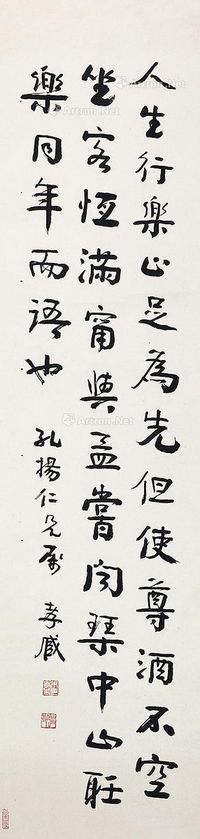 人生行樂止足為先但使尊酒不空
坐客恆滿甯與孟嘗聞琴中山聽
樂同年而語也
孔揚仁兄屬 孝臧
Artron.Net